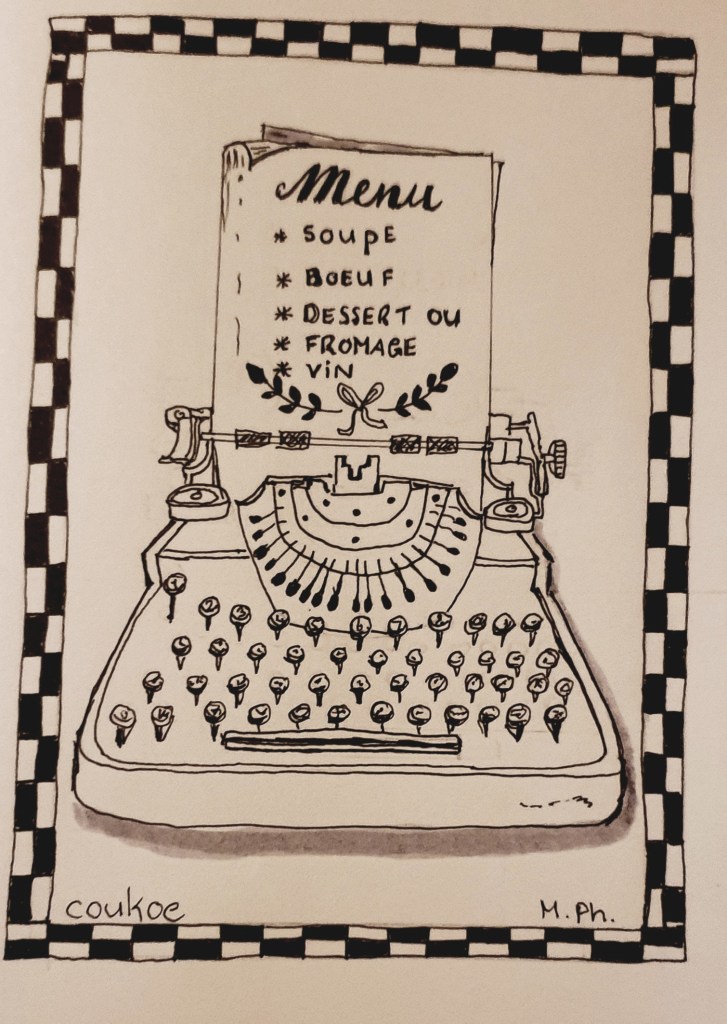 Menu
* SOUPE
* BOEUF
* DESSERT OU
* FROMAGE
* VIN
coukoe
M. Ph.